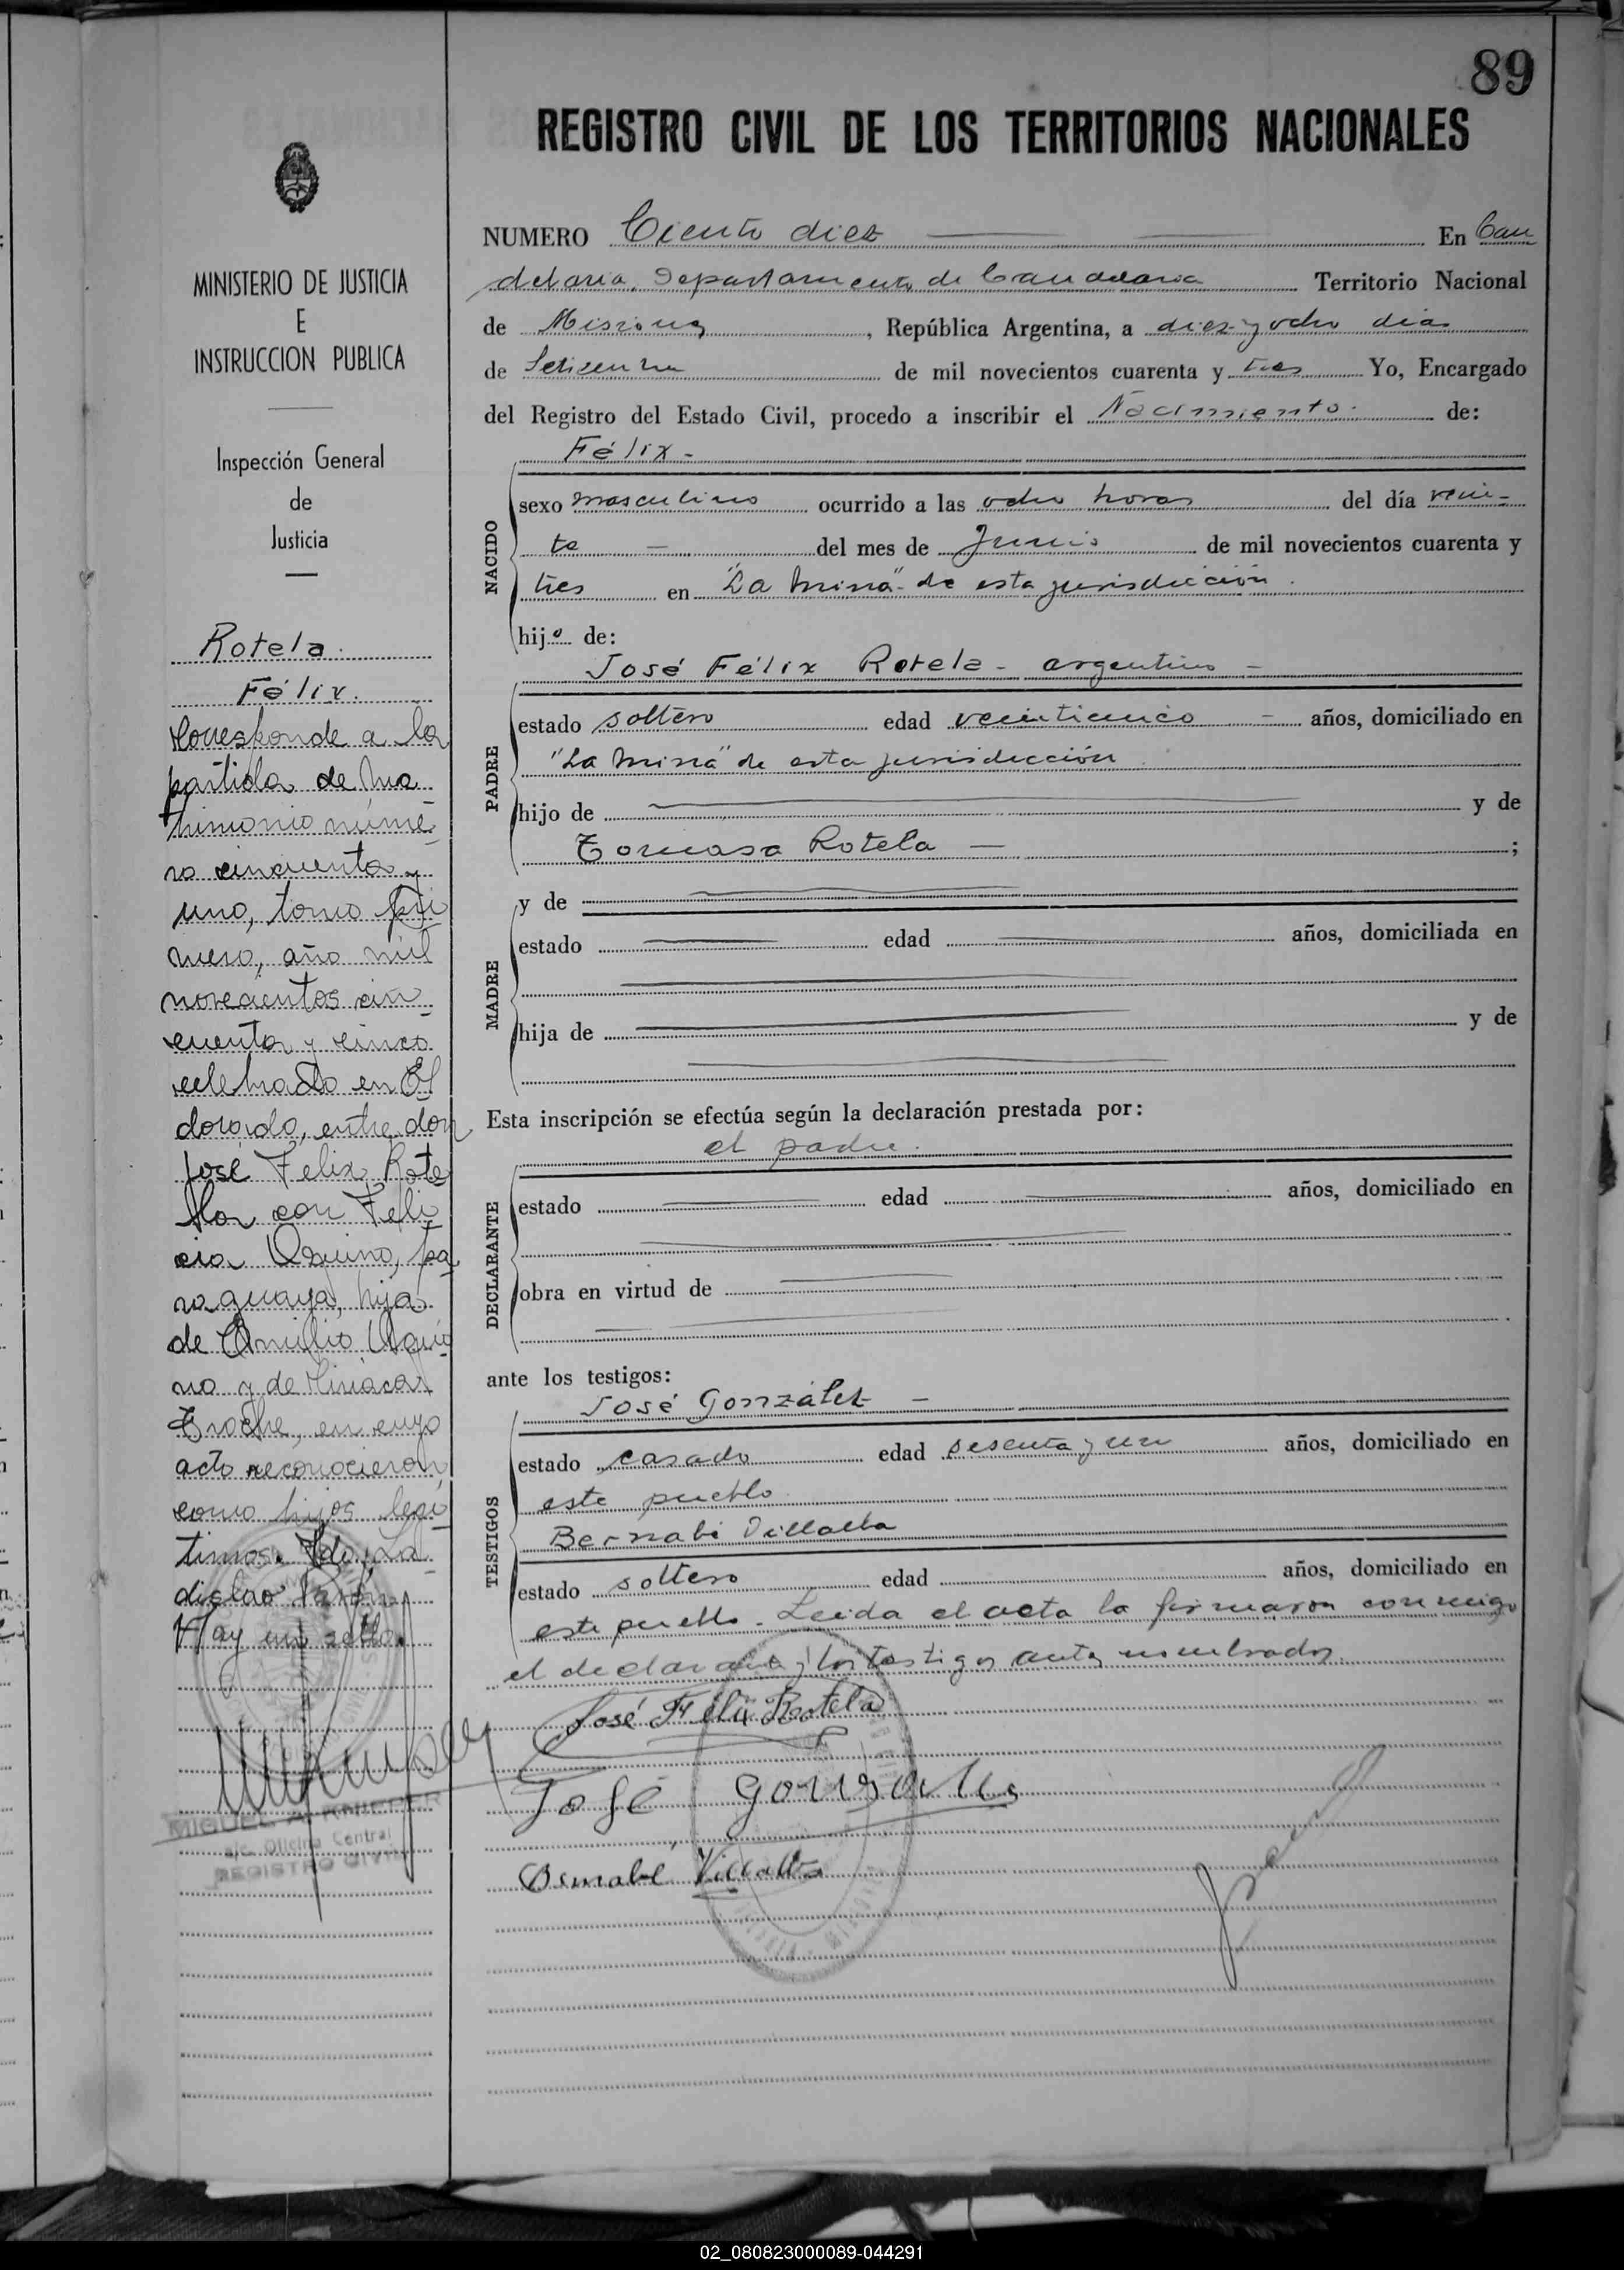 89
REGISTRO CIVIL DE LOS TERRITORIOS NACIONALES
MINISTERIO DE JUSTICIA
E
INSTRUCCION PUBLICA
Inspección General
de
Justicia
Rotela.
Félix.
Corresponde a la
partida de ma
trimonio núme
ro cincuenta y
uno, tomo pri
mero, año mil
novecientos cin
cuenta y cinco
celebrado en El
dorado, entre don
José Felix Rote
la con Feli
cia Aquino, pa
raguaya, hija
de Emilio Aqui
no y de
en cuyo
acto reconocieron
como hijos legi
timos. Fdo. La
dislao
Hay un sello.
MIGUEL A. KNIEPER
a/c. Oficina Central
REGISTRO CIVIL
NUMERO Ciento diez En Can
delaria, Departamento de Candelaria Territorio Nacional
de Misiones, República Argentina, a diez y ocho dias
de Setiembre de mil novecientos cuarenta y tres Yo, Encargado
del Registro del Estado Civil, procedo a inscribir el Nacimiento. de:
Félix -
NACIDO
sexo masculino ocurrido a las ocho horas del día vein-
te - del mes de Junio de mil novecientos cuarenta y
tres en "La Mina" de esta jurisdicción.
hijo de:
José Félix Rotela - argentino -
PADRE
estado soltero edad veinticinco - años, domiciliado en
"La Mina" de esta jurisdicción
hijo de y de
Tomasa Rotela - ;
y de
MADRE
estado edad años, domiciliada en
hija de y de
Esta inscripción se efectúa según la declaración prestada por:
el padre.
DECLARANTE
estado edad años, domiciliado en
obra en virtud de
ante los testigos:
José González -
TESTIGOS
estado casado edad sesenta y un años, domiciliado en
este pueblo
Bernabé Villalba
estado soltero edad años, domiciliado en
este pueblo. Leida el acta la firmaron conmigo
el declarante y los testigos antes nombrados.
José Félix Rotela
José Gonsales
Bernabé Villalba
02_080823000089-044291